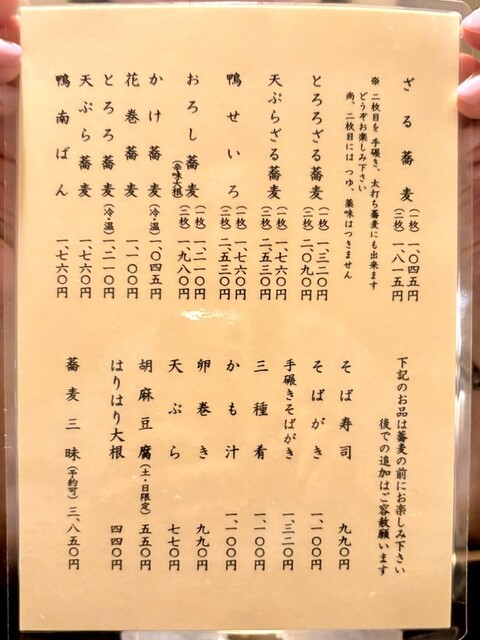 ざる蕎麦 (一枚) 一、〇四五円
(二枚) 一、八一五円
※ 二枚目を 手碾き、太打ち蕎麦にも出来ます
どうぞお楽しみ下さい
尚、二枚目には つゆ、薬味はつきません
とろろざる蕎麦 (一枚) 一、三二〇円
(二枚) 二、〇九〇円
天ぷらざる蕎麦 (一枚) 一、七六〇円
(二枚) 二、五三〇円
鴨せいろ (一枚) 一、七六〇円
(二枚) 二、五三〇円
おろし蕎麦 (辛味大根) (一枚) 一、二一〇円
(二枚) 一、九八〇円
かけ蕎麦 (冷・温) 一、〇四五円
花巻蕎麦 一、一〇〇円
とろろ蕎麦 (冷・温) 一、二一〇円
天ぷら蕎麦 一、七六〇円
鴨南ばん 一、七六〇円
下記のお品は蕎麦の前にお楽しみ下さい
後での追加はご容赦願います
そば寿司 九九〇円
そばがき 一、一〇〇円
手碾きそばがき 一、三二〇円
三種肴 一、一〇〇円
かも汁 一、一〇〇円
卵巻き 九九〇円
天ぷら 七七〇円
胡麻豆腐 (土・日限定) 五五〇円
はりはり大根 四四〇円
蕎麦三昧 (予約可) 三、八五〇円